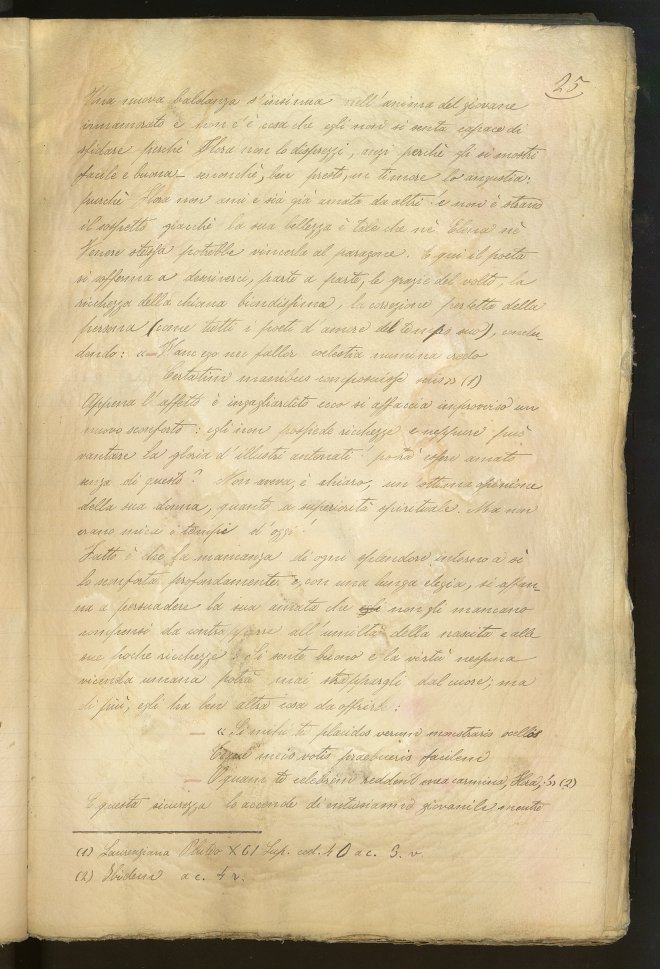 25
Una nuova baldanza s'insinua nell'anima del giovane
innamorato e non c'è cosa che egli non si senta capace di
sfidare perchè Flora non lo disprezzi, anzi perchè gli si mostri
facile e buona; senonchè, ben presto, un timore lo angustia:
purchè Flora non ami e sia già amata da altri! e non è strano
il sospetto giacchè la sua bellezza è tale che nè Elena nè
Venere stessa potrebbe vincerla al paragone. E qui il poeta
si sofferma a descriverci, parte a parte, le grazie del volto, la
ricchezza della chioma biondissima, la correzione perfetta della
persona (come tutti i poeti d'amore del tempo suo), conclu-
dendo: « Hanc ego nec fallor coelestia numina credo
Certatim manibus composuisse suis » (1)
Appena l'affetto è ingagliardito ecco si affaccia improvviso un
nuovo sconforto: egli non possiede ricchezze e neppure può
vantare la gloria d'illustri antenati! potrà esser amato
senza di questo? Non aveva, è chiaro, un'ottima opinione
della sua donna, quanto a superiorità spirituale. Ma non
erano mica i tempi d'oggi!
Fatto è che la mancanza di ogni splendore intorno a sè
lo sconforta profondamente e, con una lunga elegia, si affan-
na a persuadere la sua amata che egli non gli mancano
compensi da contrapporre all'umiltà della nascita e alle
sue poche ricchezze: si sente buono e la virtù nessuna
vicenda umana potrà mai strappargli dal cuore; ma
di più, egli ha ben altra cosa da offrirle:
— « Si mihi te placidos verum monstraris ocellos
meis votis praebueris facilem
— O quam te celebrem reddent mea carmina, Flora,!» (2)
E questa sicurezza lo accende di entusiasmo giovanile mentre
(1) Laurenziana Pluteo X61 Sup. cod. 40 a c. 3. v.
(2) Ibidem a c. 4 v.